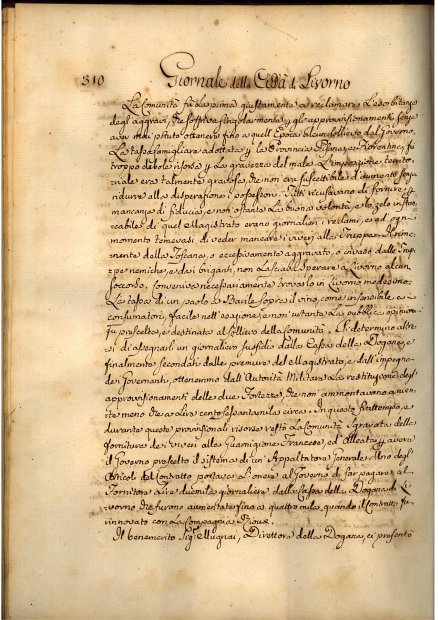 310 Giornale della Città di Livorno
La Comunità fu la prima giustamente a reclamare l'esorbitanza
degl'aggravi, che soffriva singolarmente gl'approvisionamenti senza
aver mai potuto ottenere fino a quell'Epoca alcun sollievo dal Governo,
La tassa famigliare adottata la Provincia Pisana, e Fiorentina, fu
troppo debole risorsa la gravezza del male. L'imposizione territo=
riale era talmente gradosa, che non era suscettibile d'aumento senza
indurre alla disperazione i possessori. Tutti ricusavano di fornire
mancanza di fiducia, e non ostante la buona volontà, e lo zelo instan=
cabile di quel Magistrato erano giornalieri i reclami, ed ogni
momento temevasi di veder mancare i viveri alla Truppa. Il rima=
nente della Toscana, o eccessivamente aggravato, o invaso dalle Trup=
pe nemiche, e da i briganti, non lasciava sperare a Livorno alcun
soccorso, conveniva necessariamente trovarlo in Livorno medesimo.
La tassa di un paolo a Barile sopra il vino, come insensibile a i
consumatori, facile nell'esazione, e non urtante la pubblica opinione
fu prescelta, e destinata al sollievo della Comunità. Si determinò altre=
sì di assegnarli un giornaliero sussidio dalla Cassa della Dogana, e
finalmente secondati dalle premure del Magistrato, e dell'impegno
dei Governanti, ottenemmo dall'Autorità Militare la restituzione degl'
approvisionamenti delle due Fortezze, che non ammontavano a uen=
te meno che a Lire cento sessantamila circa. In questo frattempo, e
durante queste provisionali risorse restò la Comunità sgravata della
fornitura dei viveri alle Guarnigione Francese, ed Alleata avere
il Governo prescelto il sistema di un'Appaltatore Generale. Uno degl'
Articoli del Contratto portava l'onere al Governo di far pagare al
Fornitore Lire duemila giornaliere dalla Cassa della Dogana di Li=
vorno che furono aumentate fino a quattro mila, quando il Contratto fu
rinnovato con la Compagnia
Il benemerito Sig. Mugnai, Direttore della Dogana, ci presentò